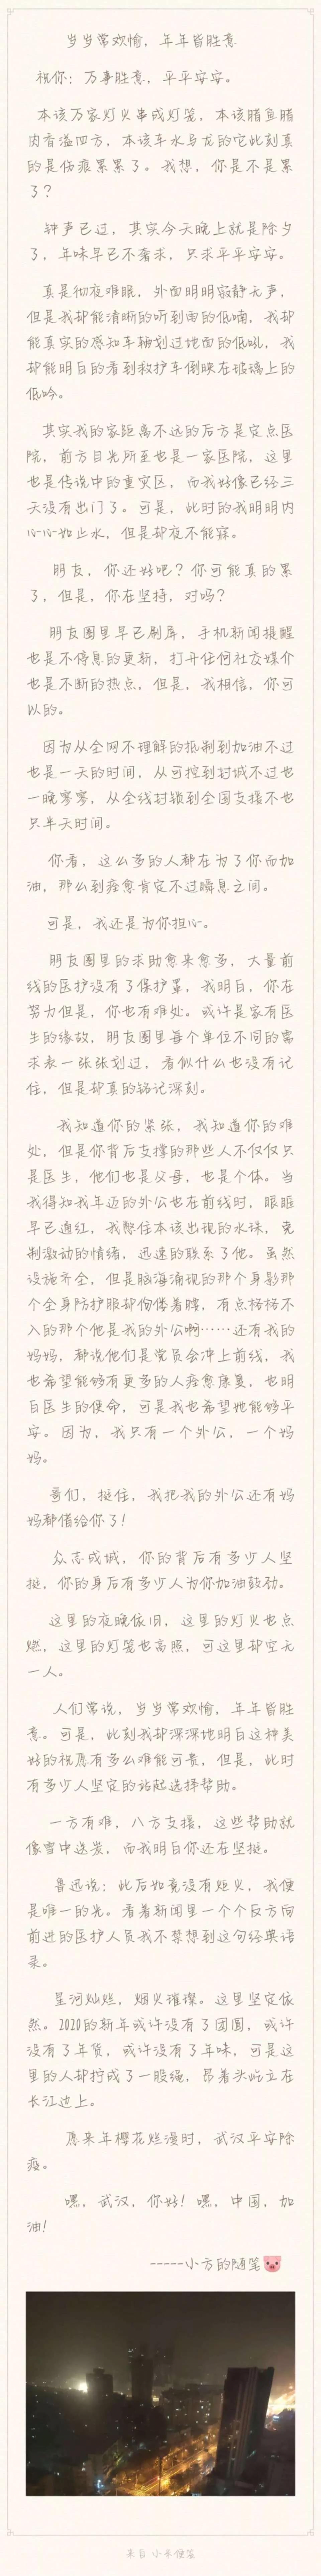 岁岁常欢愉，年年皆胜意
祝你：万事胜意，平平安安。
本该万家灯火串成灯笼，本该腊鱼腊
肉香溢四方，本该车水马龙的它此刻真
的是伤痕累累了。我想，你是不是累
了？
钟声已过，其实今天晚上就是除夕
了，年味早已不奢求，只求平平安安。
真是彻夜难眠，外面明明寂静无声，
但是我却能清晰的听到雨的低喃，我却
能真实的感知车辆划过地面的低吼，我
却能明白的看到救护车倒映在玻璃上的
低吟。
其实我的家距离不远的后方是定点医
院，前方目光所至也是一家医院，这里
也是传说中的重灾区，而我好像已经三
天没有出门了。可是，此时的我明明内
心心如止水，但是却夜不能寐。
朋友，你还好吧？你可能真的累
了，但是，你在坚持，对吗？
朋友圈里早已刷屏，手机新闻提醒
也是不停息的更新，打开任何社交媒介
也是不断的热点，但是，我相信，你可
以的。
因为从全网不理解的抵制到加油不过
也是一天的时间，从可控到封城不过也
一晚寥寥，从全线封锁到全国支援不也
只半天时间。
你看，这么多的人都在为了你而加
油，那么到痊愈肯定不过瞬息之间。
可是，我还是为你担心。
朋友圈里的求助愈来愈多，大量前
线的医护没有了保护罩，我明白，你在
努力但是，你也有难处。或许是家有医
生的缘故，朋友圈里每个单位不同的需
求表一张张划过，看似什么也没有记
住，但是却真的铭记深刻。
我知道你的紧张，我知道你的难
处，但是你背后支撑的那些人不仅仅只
是医生，他们也是父母，也是个体。当
我得知我年迈的外公也在前线时，眼眶
早已通红，我憋住本该出现的水珠，克
制激动的情绪，迅速的联系了他。虽然
设施齐全，但是脑海涌现的那个身影那
个全身防护服却佝偻着腰，有点格格不
入的那个他是我的外公啊……还有我的
妈妈，都说他们是党员会冲上前线，我
也希望能够有更多的人痊愈康复，也明
白医生的使命，可是我也希望她能够平
安。因为，我只有一个外公，一个妈
妈。
哥们，挺住，我把我的外公还有妈
妈都借给你了！
众志成城，你的背后有多少人坚
挺，你的身后有多少人为你加油鼓劲。
这里的夜晚依旧，这里的灯火也点
燃，这里的灯笼也高照，可这里却空无
一人。
人们常说，岁岁常欢愉，年年皆胜
意。可是，此刻我却深深地明白这种美
好的祝愿有多么难能可贵，但是，此时
有多少人坚定的站起选择帮助。
一方有难，八方支援，这些帮助就
像雪中送炭，而我明白你还在坚挺。
鲁迅说：此后如竟没有炬火，我便
是唯一的光。看着新闻里一个个反方向
前进的医护人员我不禁想到这句经典语
录。
星河灿烂，烟火璀璨。这里坚定依
然。2020的新年或许没有了团圆，或许
没有了年货，或许没有了年味，可是这
里的人却拧成了一股绳，昂着头屹立在
长江边上。
愿来年樱花烂漫时，武汉平安除
疫。
嘿，武汉，你好！嘿，中国，加
油！
-----小方的随笔
来自 小米便签